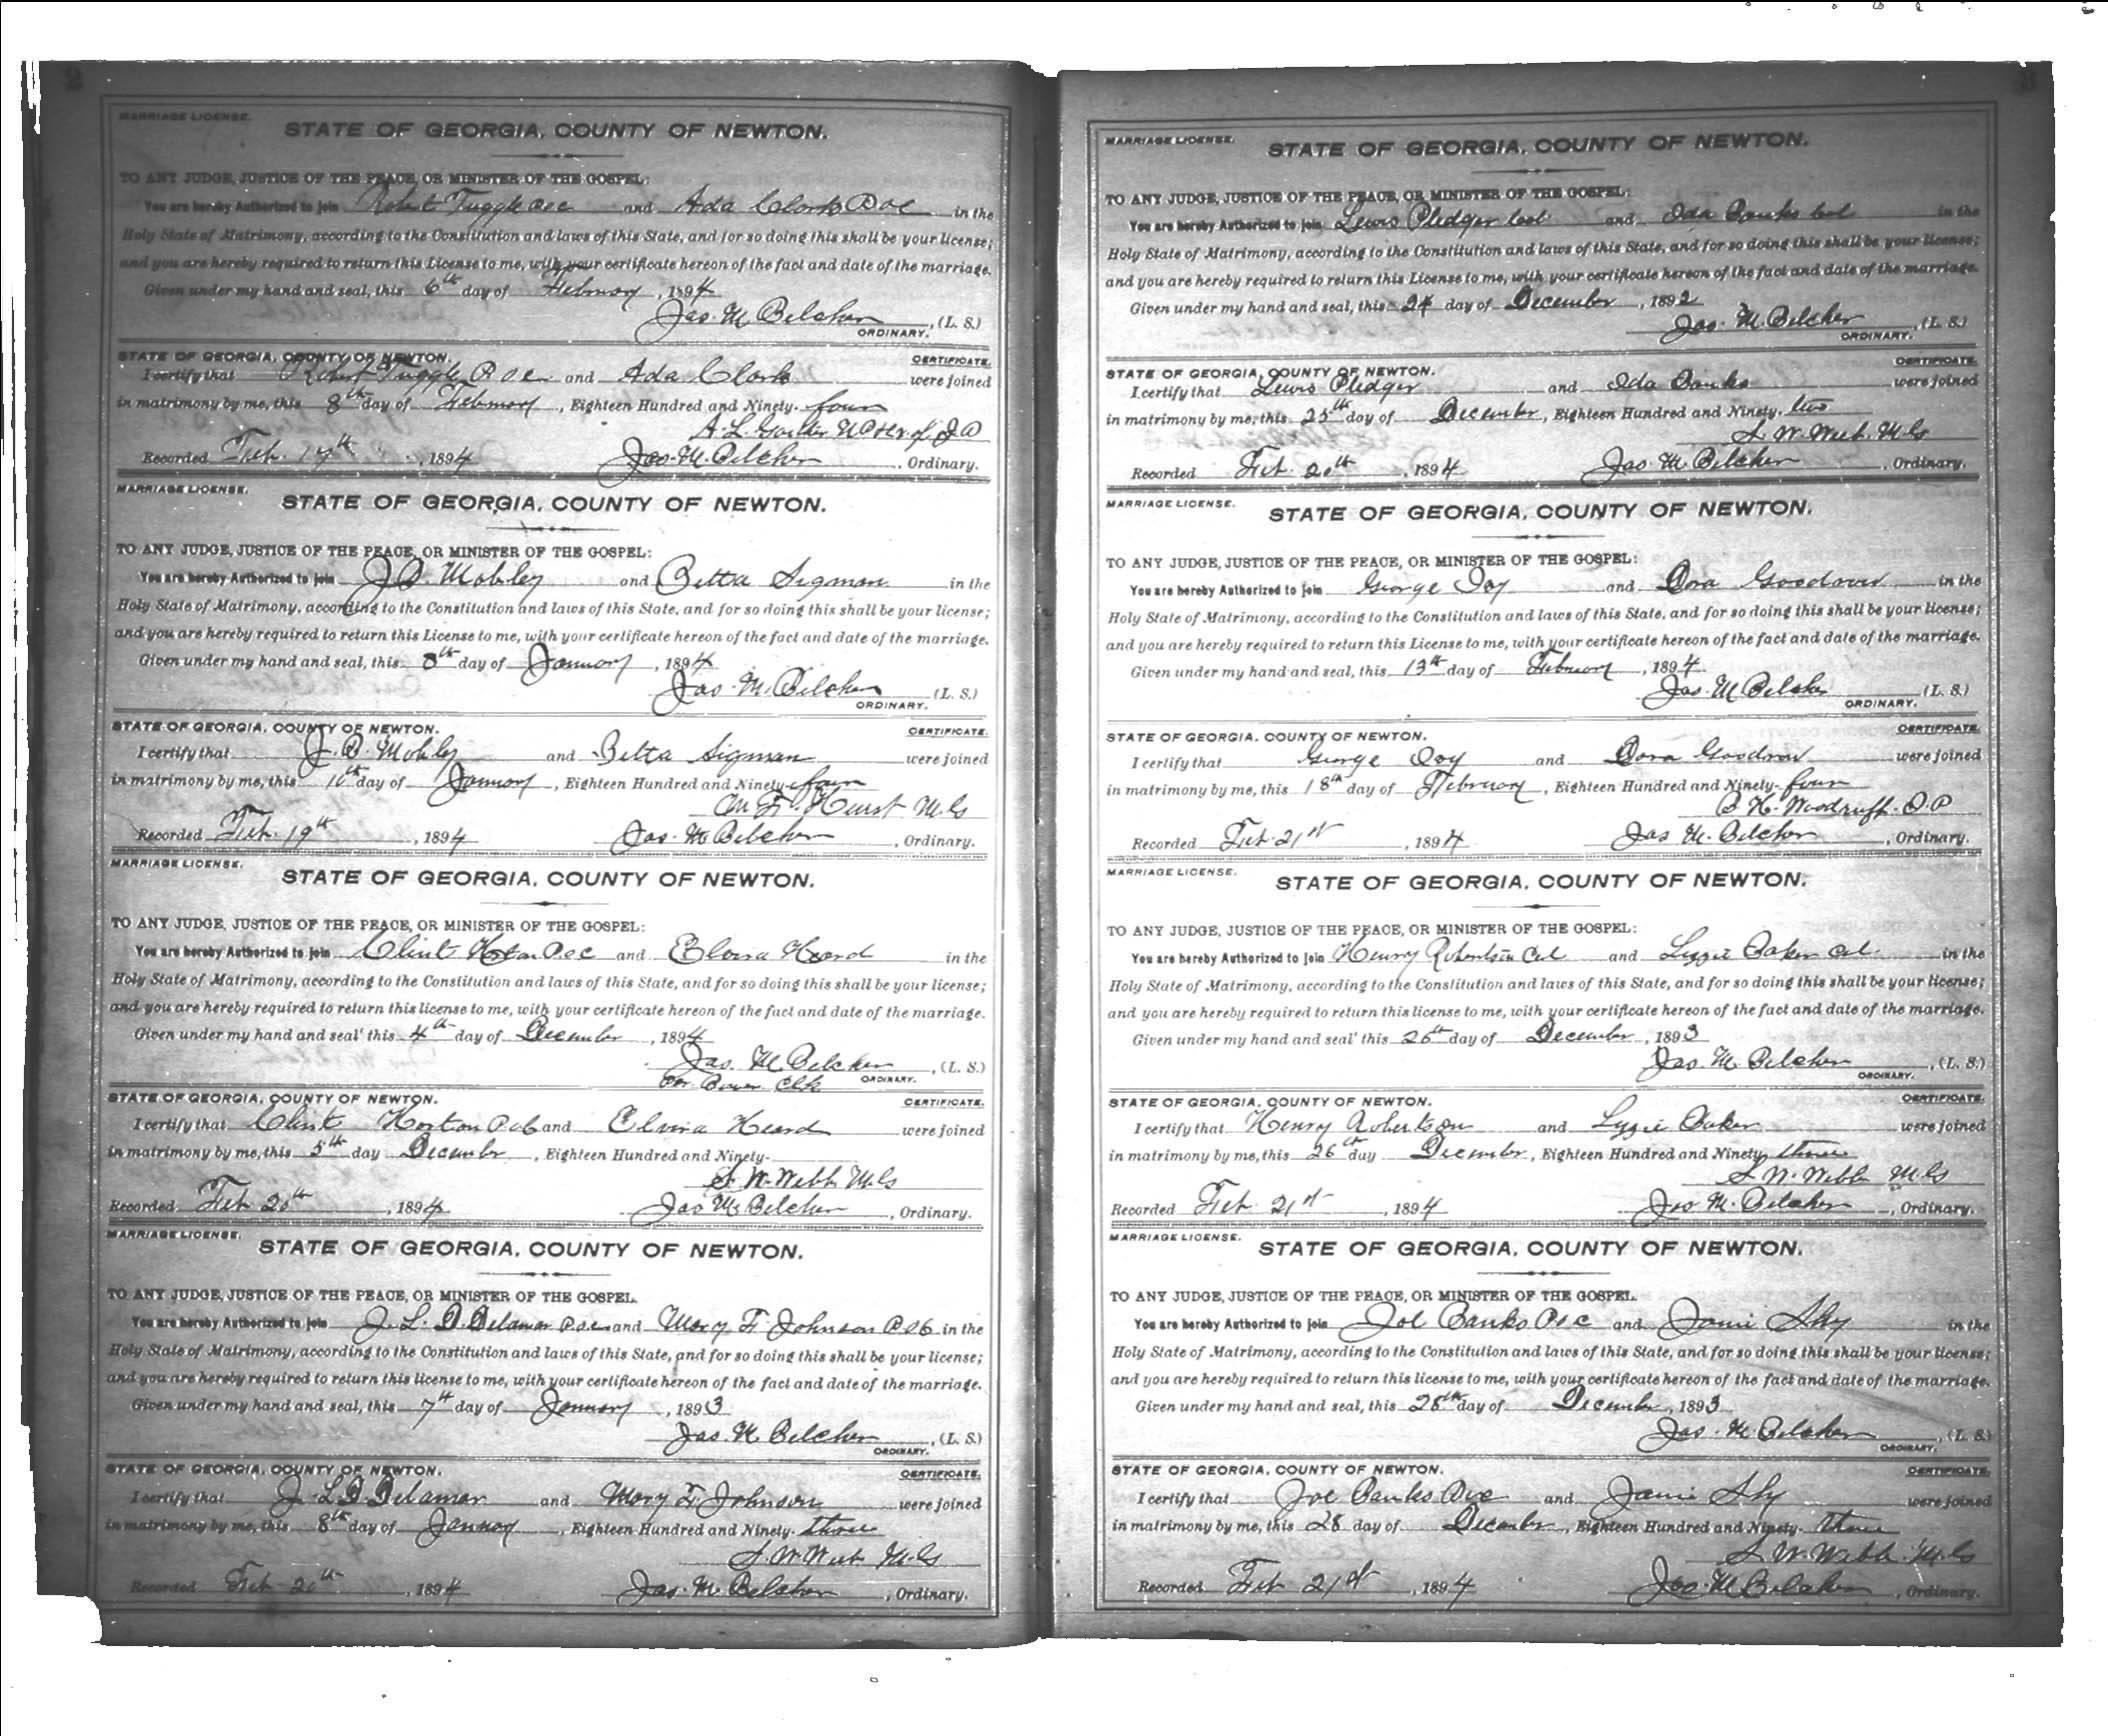 MARRIAGE LICENSE.
STATE OF GEORGIA, COUNTY OF NEWTON.
TO ANY JUDGE, JUSTICE OF THE PEACE, OR MINISTER OF THE GOSPEL:
You are hereby Authorized to join Robert Tuggle and Ada Clark in the
Holy State of Matrimony, according to the Constitution and laws of this State, and for so doing this shall be your license;
and you are hereby required to return this License to me, with your certificate hereon of the fact and date of the marriage.
Given under my hand and seal, this 6th day of February, 1894
Jas. M. Belcher, (L. S.)
ORDINARY.
STATE OF GEORGIA, COUNTY OF NEWTON. CERTIFICATE.
I certify that Robert Tuggle and Ada Clark were joined
in matrimony by me, this 8th day of February, Eighteen Hundred and Ninety-four
A. L.
Recorded Feb. 17th, 1894 Jas. M. Belcher, Ordinary.
MARRIAGE LICENSE.
STATE OF GEORGIA, COUNTY OF NEWTON.
TO ANY JUDGE, JUSTICE OF THE PEACE, OR MINISTER OF THE GOSPEL:
You are hereby Authorized to join Mobley and Betta Sigman in the
Holy State of Matrimony, according to the Constitution and laws of this State, and for so doing this shall be your license;
and you are hereby required to return this License to me, with your certificate hereon of the fact and date of the marriage.
Given under my hand and seal, this 8th day of January, 1894
Jas. M. Belcher (L. S.)
ORDINARY.
STATE OF GEORGIA, COUNTY OF NEWTON. CERTIFICATE.
I certify that Mobley and Betta Sigman were joined
in matrimony by me, this 10th day of January, Eighteen Hundred and Ninety-four
Hurst M.G
Recorded Feb. 19th, 1894 Jas. M. Belcher, Ordinary.
MARRIAGE LICENSE.
STATE OF GEORGIA, COUNTY OF NEWTON.
TO ANY JUDGE, JUSTICE OF THE PEACE, OR MINISTER OF THE GOSPEL:
You are hereby Authorized to join Clint Horton and Elvira Heard in the
Holy State of Matrimony, according to the Constitution and laws of this State, and for so doing this shall be your license;
and you are hereby required to return this license to me, with your certificate hereon of the fact and date of the marriage.
Given under my hand and seal' this 4th day of December, 1894
Jas. M. Belcher, (L. S.)
Clk ORDINARY.
STATE OF GEORGIA, COUNTY OF NEWTON. CERTIFICATE.
I certify that Clint Horton and Elvira Heard were joined
in matrimony by me, this 5th day December, Eighteen Hundred and Ninety-
S. W. Webb M.G
Recorded Feb. 20th, 1894 Jas. M. Belcher, Ordinary.
MARRIAGE LICENSE.
STATE OF GEORGIA, COUNTY OF NEWTON.
TO ANY JUDGE, JUSTICE OF THE PEACE, OR MINISTER OF THE GOSPEL.
You are hereby Authorized to join J. L. D. Delamar and Mary F. Johnson in the
Holy State of Matrimony, according to the Constitution and laws of this State, and for so doing this shall be your license;
and you are hereby required to return this license to me, with your certificate hereon of the fact and date of the marriage.
Given under my hand and seal, this 7th day of January, 1893
Jas. M. Belcher, (L. S.)
ORDINARY.
STATE OF GEORGIA, COUNTY OF NEWTON. CERTIFICATE.
I certify that J. L. D. Delamar and Mary F. Johnson were joined
in matrimony by me, this 8th day of January, Eighteen Hundred and Ninety-three
S. W. Webb M.G
Recorded Feb. 20th, 1894 Jas. M. Belcher, Ordinary.
MARRIAGE LICENSE.
STATE OF GEORGIA, COUNTY OF NEWTON.
TO ANY JUDGE, JUSTICE OF THE PEACE, OR MINISTER OF THE GOSPEL:
You are hereby Authorized to join Lewis Pledger col and Ida Banks col in the
Holy State of Matrimony, according to the Constitution and laws of this State, and for so doing this shall be your license;
and you are hereby required to return this License to me, with your certificate hereon of the fact and date of the marriage.
Given under my hand and seal, this 24 day of December, 1892
Jas. M. Belcher, (L. S.)
ORDINARY.
STATE OF GEORGIA, COUNTY OF NEWTON. CERTIFICATE.
I certify that Lewis Pledger and Ida Banks were joined
in matrimony by me, this 25th day of December, Eighteen Hundred and Ninety-two
S. W. Webb M.G
Recorded Feb. 20th, 1894 Jas. M. Belcher, Ordinary.
MARRIAGE LICENSE.
STATE OF GEORGIA, COUNTY OF NEWTON.
TO ANY JUDGE, JUSTICE OF THE PEACE, OR MINISTER OF THE GOSPEL:
You are hereby Authorized to join George and Dora in the
Holy State of Matrimony, according to the Constitution and laws of this State, and for so doing this shall be your license;
and you are hereby required to return this License to me, with your certificate hereon of the fact and date of the marriage.
Given under my hand and seal, this 13th day of February, 1894
Jas. M. Belcher (L. S.)
ORDINARY.
STATE OF GEORGIA, COUNTY OF NEWTON. CERTIFICATE.
I certify that George and Dora were joined
in matrimony by me, this 18th day of February, Eighteen Hundred and Ninety-four
H. Woodruff
Recorded Feb. 21st, 1894 Jas. M. Belcher, Ordinary.
MARRIAGE LICENSE.
STATE OF GEORGIA, COUNTY OF NEWTON.
TO ANY JUDGE, JUSTICE OF THE PEACE, OR MINISTER OF THE GOSPEL:
You are hereby Authorized to join Henry Robertson Col and Lizzie Baker Col in the
Holy State of Matrimony, according to the Constitution and laws of this State, and for so doing this shall be your license;
and you are hereby required to return this license to me, with your certificate hereon of the fact and date of the marriage.
Given under my hand and seal' this 26th day of December, 1893
Jas. M. Belcher, (L. S.)
ORDINARY.
STATE OF GEORGIA, COUNTY OF NEWTON. CERTIFICATE.
I certify that Henry Robertson and Lizzie Baker were joined
in matrimony by me, this 26th day December, Eighteen Hundred and Ninety three
S. W. Webb M.G
Recorded Feb. 21st, 1894 Jas. M. Belcher, Ordinary.
MARRIAGE LICENSE.
STATE OF GEORGIA, COUNTY OF NEWTON.
TO ANY JUDGE, JUSTICE OF THE PEACE, OR MINISTER OF THE GOSPEL.
You are hereby Authorized to join Joe Banks and Janie in the
Holy State of Matrimony, according to the Constitution and laws of this State, and for so doing this shall be your license;
and you are hereby required to return this license to me, with your certificate hereon of the fact and date of the marriage.
Given under my hand and seal, this 28th day of December, 1893
Jas. M. Belcher, (L. S.)
ORDINARY.
STATE OF GEORGIA, COUNTY OF NEWTON. CERTIFICATE.
I certify that Joe Banks and Janie were joined
in matrimony by me, this 28 day of December, Eighteen Hundred and Ninety-three
S. W. Webb M.G
Recorded Feb. 21st, 1894 Jas. M. Belcher, Ordinary.